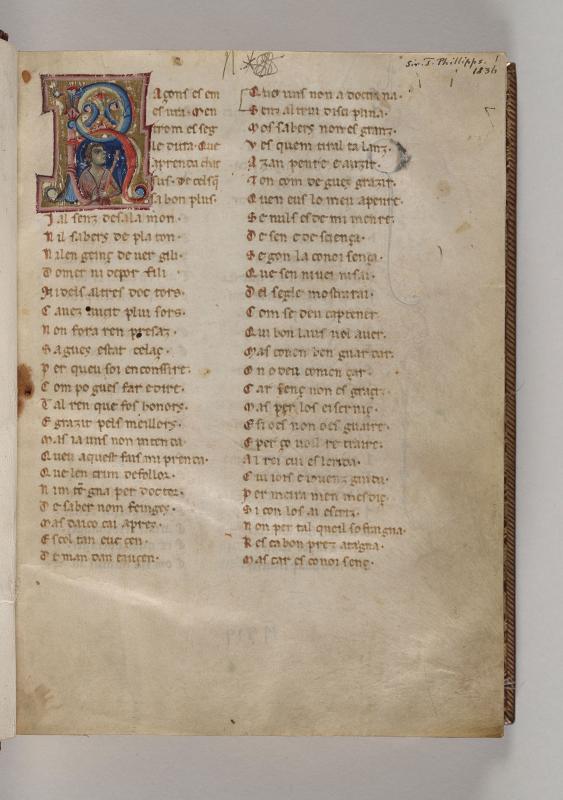 Sir. T. Phillipps.
1836
R
açons es em
trom es seg
le dura. Que
aprenda
sus. De celsq
sa bon plus.
Ial senz de sala mon.
Nil sabers de pla ton.
Nalen geing de ver gili.
Domer ni de por fili
Ni dels altres doc tors.
Cauez auçit pluisors.
Non fora ren presaz.
Sagues estat celaç.
Per queu soi en consire.
Com po gues far e dire.
Tal ren que fos honors.
E grazir pels meillors.
Mas ia uns non mi en ten da
Queu aquest fais mi prenda.
Que len crim de follor.
Nim tegna per doctor.
De saber nom feinges.
Mas daico cai apres.
Escol tan euezen.
De man dan e auçen.
Que uns non a doctri na.
Senz altrui disci plina.
Mos sabers non es granz.
Mas can peure e auzir.
Ton com de gues grazir.
Queu eus lo meu
Se nuls es de mi menre.
De sen e de sciença.
Segon la conoi sença.
Que sen niuei ni sai.
Del segle mostrarai.
Com se deu captener.
Qui bon laus uol auer.
Mas couen ben guar dar.
On o deu comen çar.
Car senç non es graziç
Mas per los eiserniç.
E si o es non o es guaire.
E per ço uoil re traire.
Al rei cui es lerida.
Cui iois e iouenz guida.
Per meira men mes diç.
Si con los ai escriz.
Non per tal queil sofraigna.
Res ca bon prez ataigna.
Mas car es conoi senç.